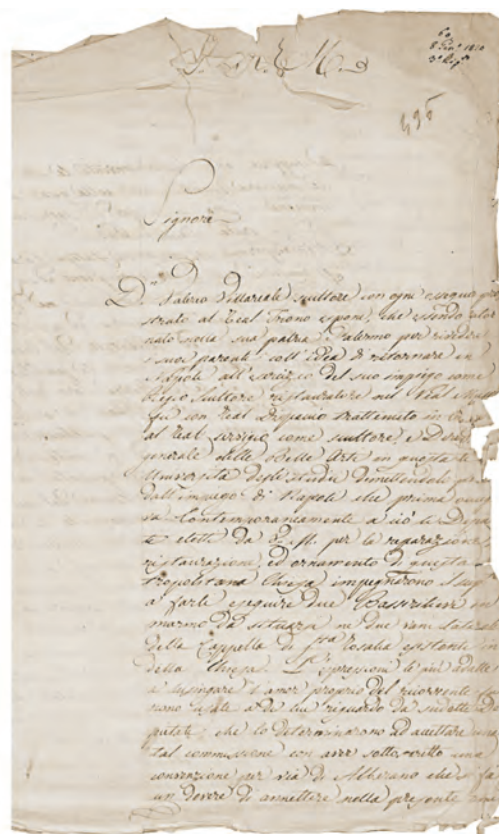 S. R. M.
60
8
3º
495
Signora
D.n Valerio Villareale scultore con ogni essequio pro
strato al Real Trono espone, che essendo ritor
nato nella sua patria Palermo per rivedere
i suoi parenti coll'idea di ritornare in
Napoli all'esercizio del suo impiego come
Regio scultore ristauratore nel Real Mu
fu con Real Dispaccio trattenuto in
al Real servigio come scultore, e Dirett
generale delle Belle Arti in questa R.
Università degli studii dimettendolo
dall'impiego di Napoli che prima occup
va. Contemporaneamente a ciò li Depu
ti eletti da S. M. per la riparazione,
ristaurazione, ed ornamento di questa
tropolitana Chiesa impegnarono
a farli eseguire due Bassirilievi in
marmo da situarsi ne due vani laterali
della Cappella di S.ta Rosalia esistente in
detta Chiesa. L'espressioni le più adatte
a lusingare l'amor proprio del ricorrente fu
rono usate a di lui riguardo da sudetti De
putati, che lo determinarono ad accettare una
tal commissione con aver sottoscritto una
convenzione per via di Alberano che si fa
un dovere di annettere nella presente